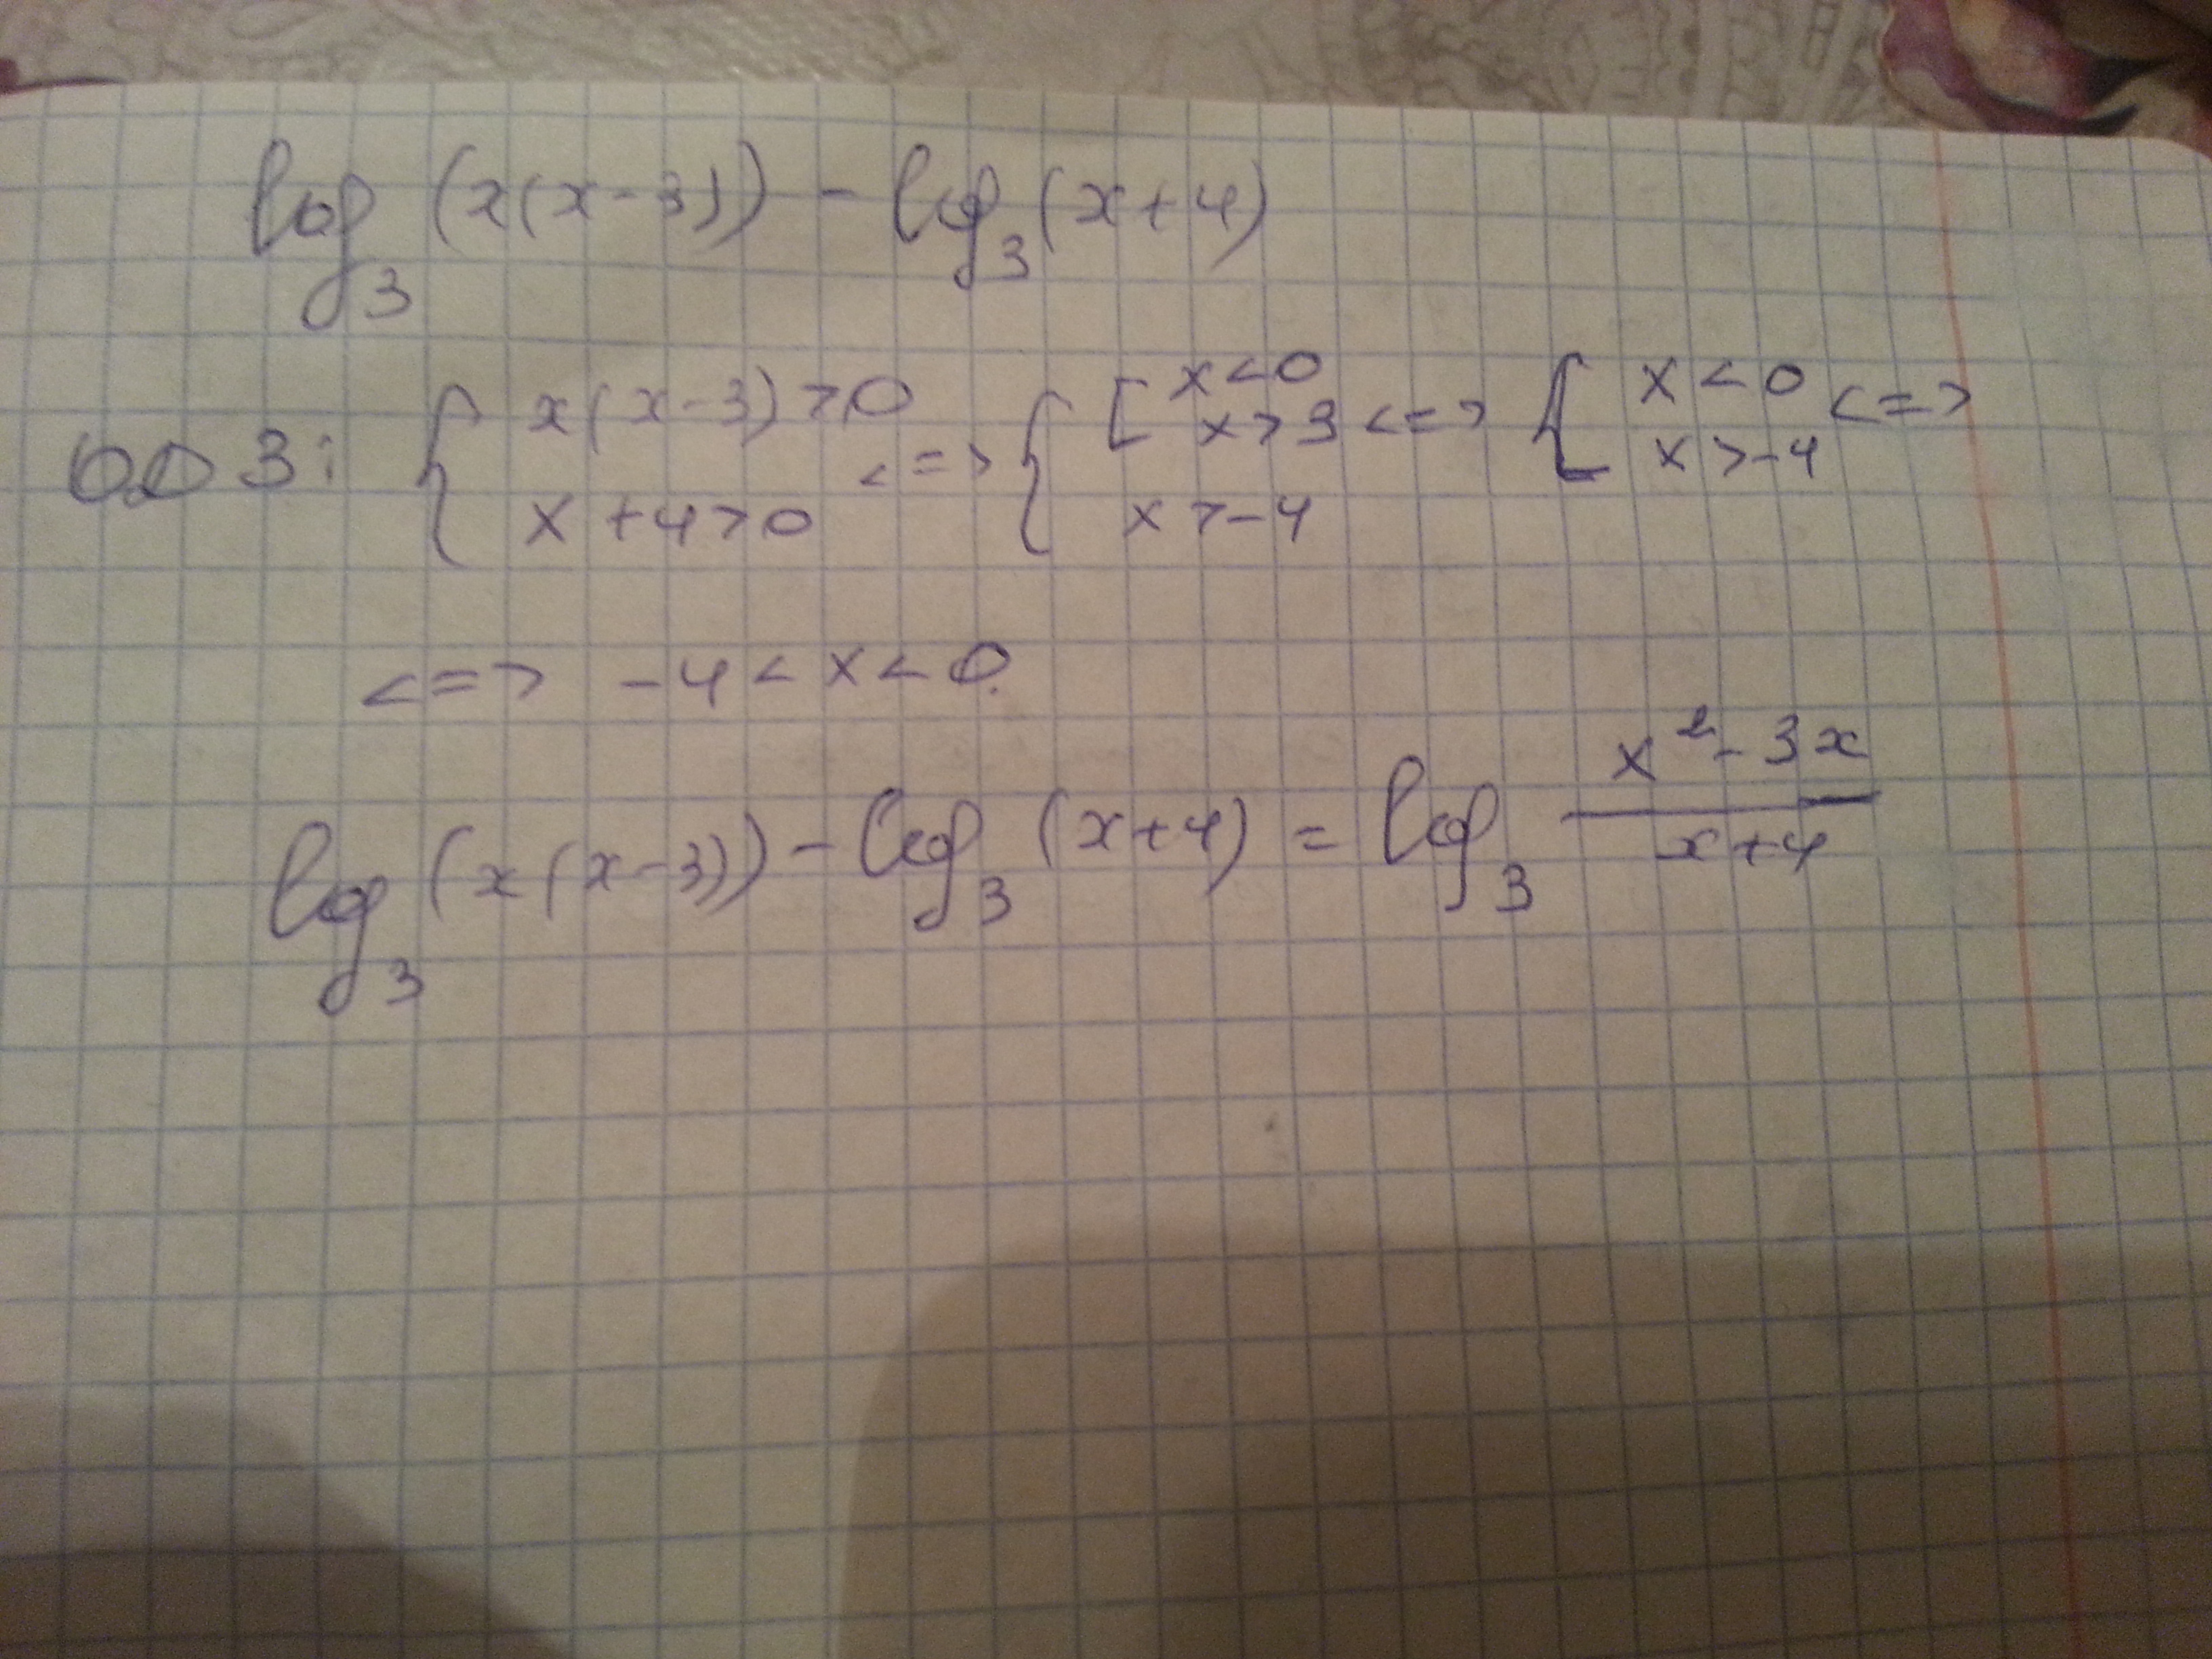 log₃ (x(x-3)) - log₃ (x+4)
ОДЗ: { x(x-3) > 0 <=> { [ x<0 x>3 <=> { x<0 <=>
x+4>0 x>-4 x>-4
<=> -4 < x < 0.
log₃ (x(x-3)) - log₃ (x+4) = log₃ (x²-3x)/(x+4)